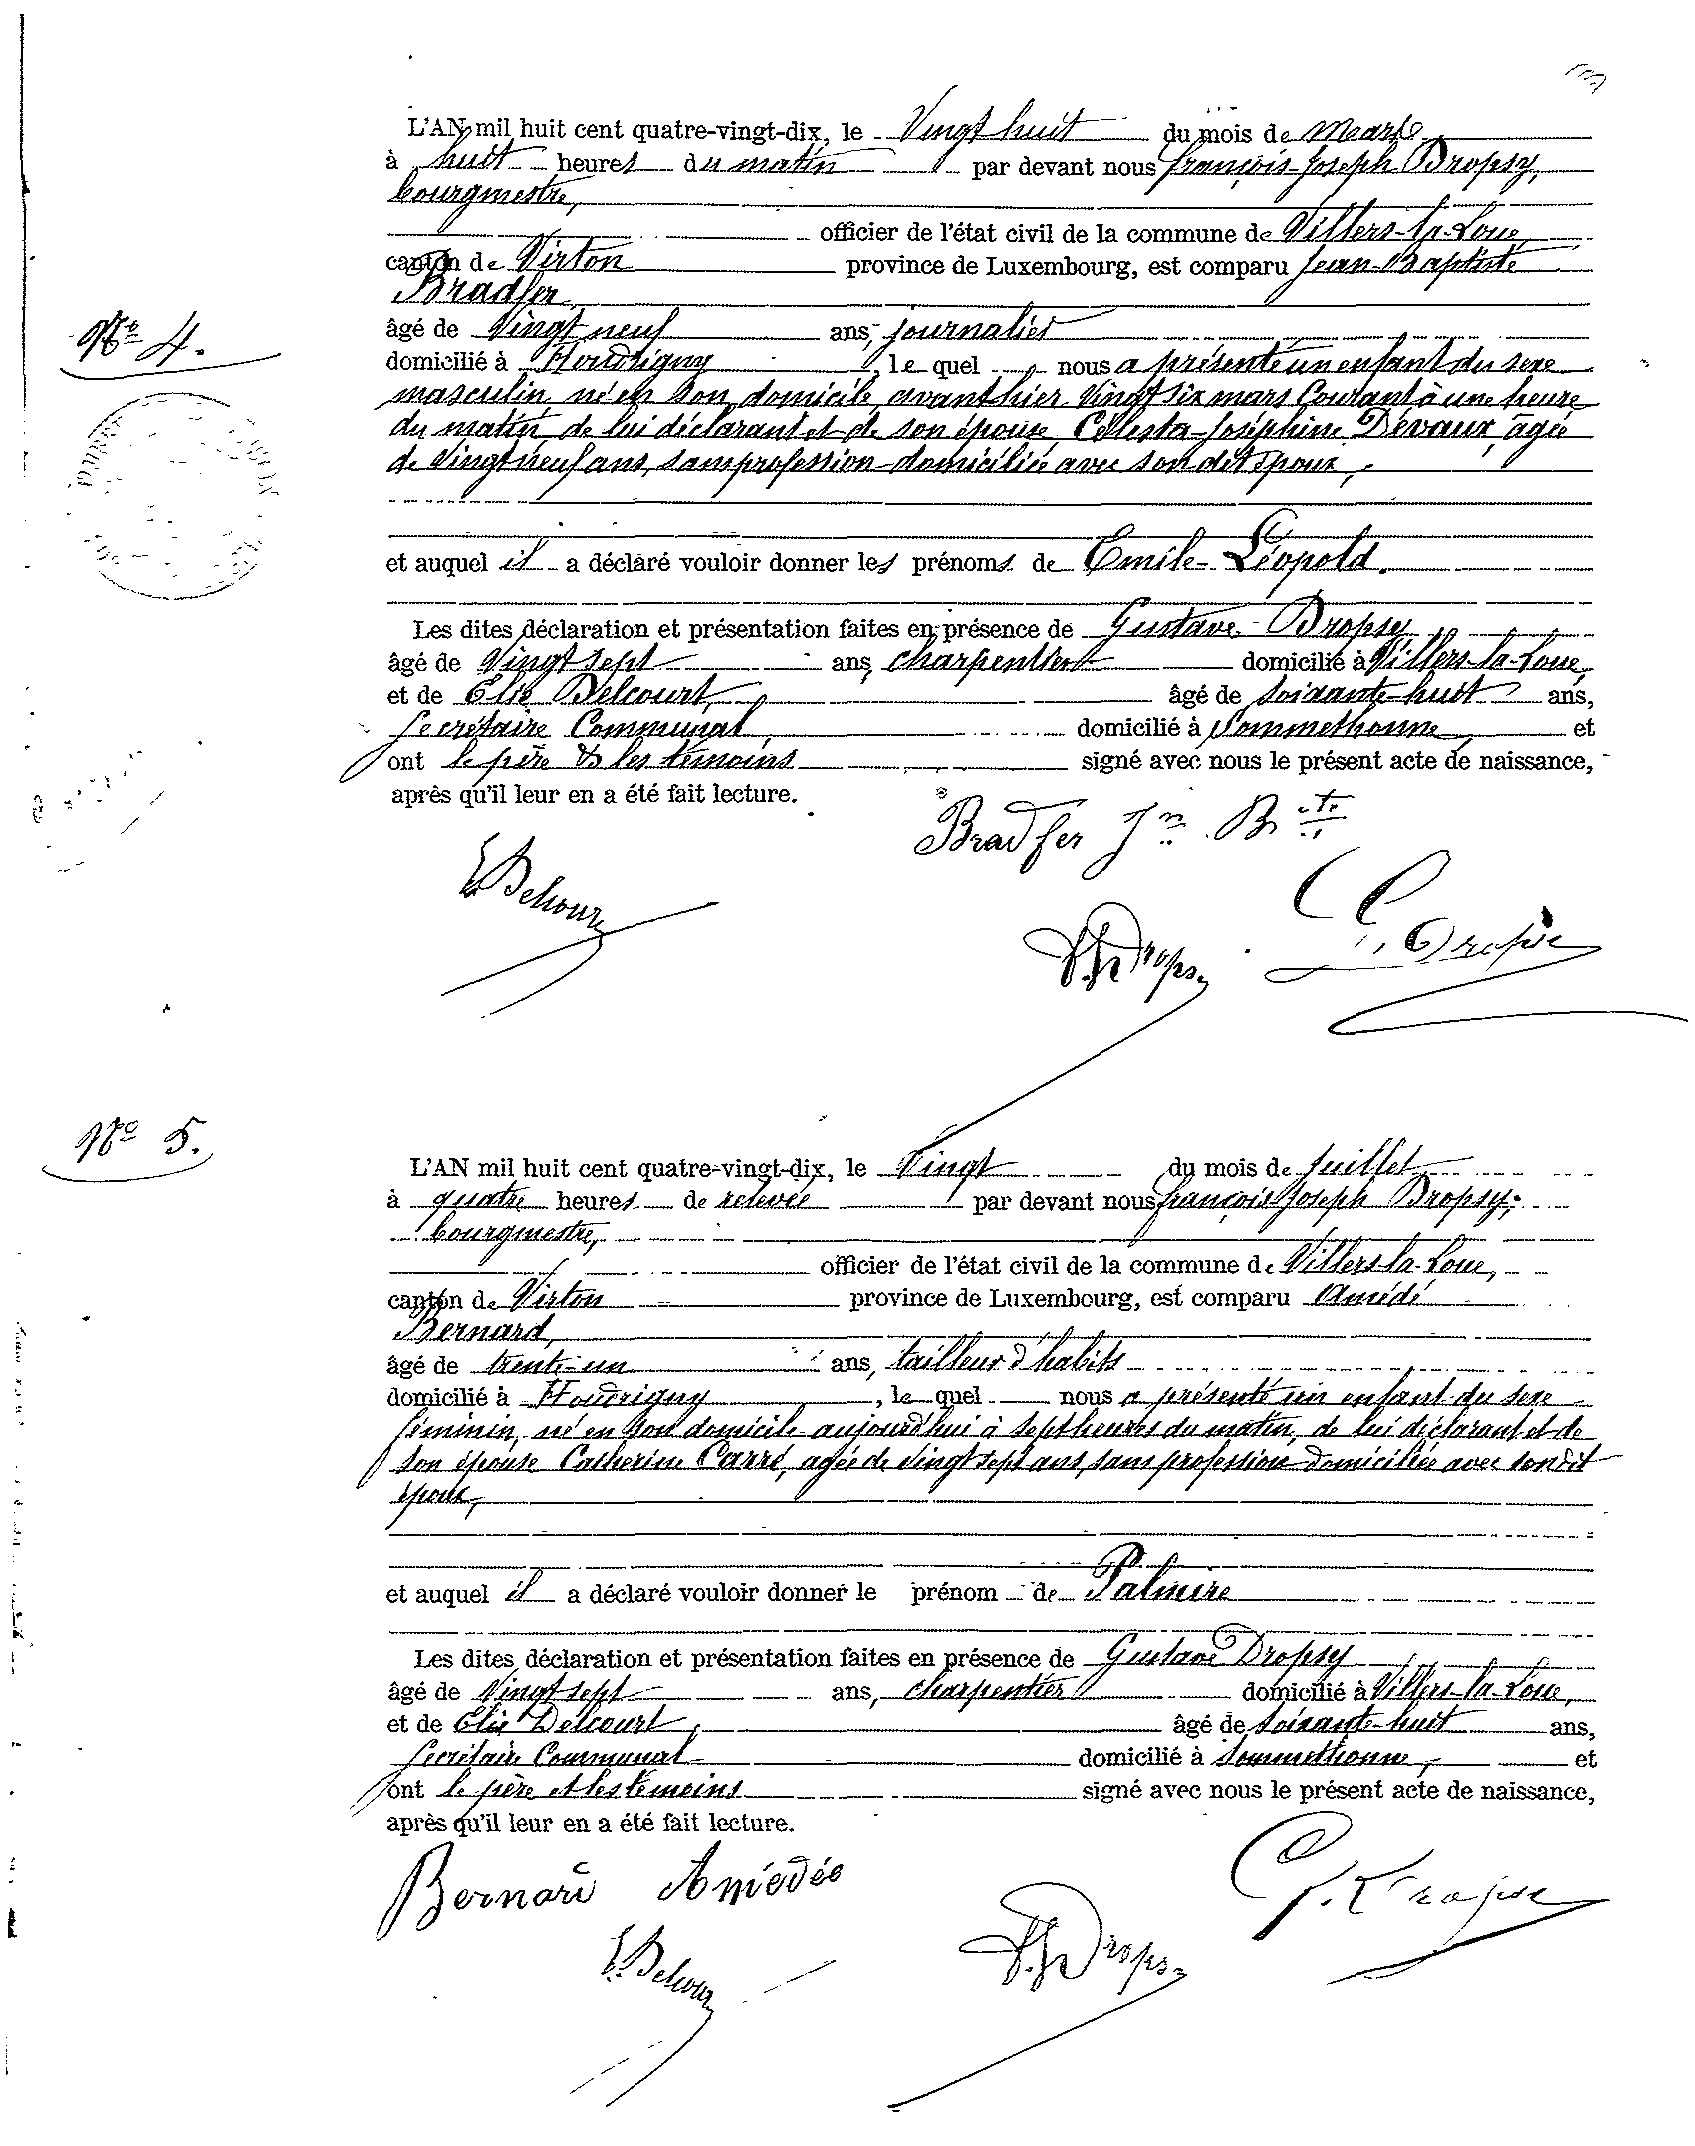 L'AN mil huit cent quatre-vingt-dix, le Vingt huit du mois de mars
à huit heures du matin par devant nous françois-Joseph Dropsy,
bourgmestre,
officier de l'état civil de la commune de Villers-la-Loue,
canton de Virton province de Luxembourg, est comparu Jean-Baptiste
Bradfer
âgé de Vingt neuf ans, journalier
Nº 4.
domicilié à Houdrigny, le quel nous a présenté un enfant du sexe
masculin né en son domicile avant hier Vingt six mars Courant à une heure
du matin de lui déclarant et de son épouse Célesta-Joséphine Dévaux, agée
de Vingt neuf ans, sans profession domiciliée avec son dit époux,
et auquel il a déclaré vouloir donner les prénoms de Emile-Léopold.
Les dites déclaration et présentation faites en présence de Gustave Dropsy
âgé de Vingt sept ans, charpentier domicilié à Villers-la-Loue,
et de Elie Delcourt, âgé de soixante-huit ans,
Secrétaire Communal, domicilié à Sommethonne, et
ont le père & les témoins signé avec nous le présent acte de naissance,
après qu'il leur en a été fait lecture.
Bradfer Jn Bte
E Delcour
F. J. Dropsy
G. Dropsy
Nº 5.
L'AN mil huit cent quatre-vingt-dix, le Vingt du mois de Juillet
à quatre heures de relevée par devant nous françois Joseph Dropsy,
bourgmestre,
officier de l'état civil de la commune de Villers-la-Loue,
canton de Virton province de Luxembourg, est comparu Amédé
Bernard,
âgé de trente-un ans, tailleur d'habits
domicilié à Houdrigny, le quel nous a présenté un enfant du sexe
féminin, né en son domicile aujourd'hui à sept heures du matin, de lui déclarant et de
son épouse Catherine Carré, agée de Vingt sept ans, sans profession domiciliée avec son dit
époux,
et auquel il a déclaré vouloir donner le prénom de Palmire
Les dites déclaration et présentation faites en présence de Gustave Dropsy
âgé de Vingt sept ans, charpentier domicilié à Villers-la-Loue,
et de Elie Delcourt, âgé de soixante-huit ans,
Secrétaire Communal domicilié à Sommethonne, et
ont le père et les témoins signé avec nous le présent acte de naissance,
après qu'il leur en a été fait lecture.
Bernard Amédée
G. Dropsy
E. Delcour
F. J. Dropsy